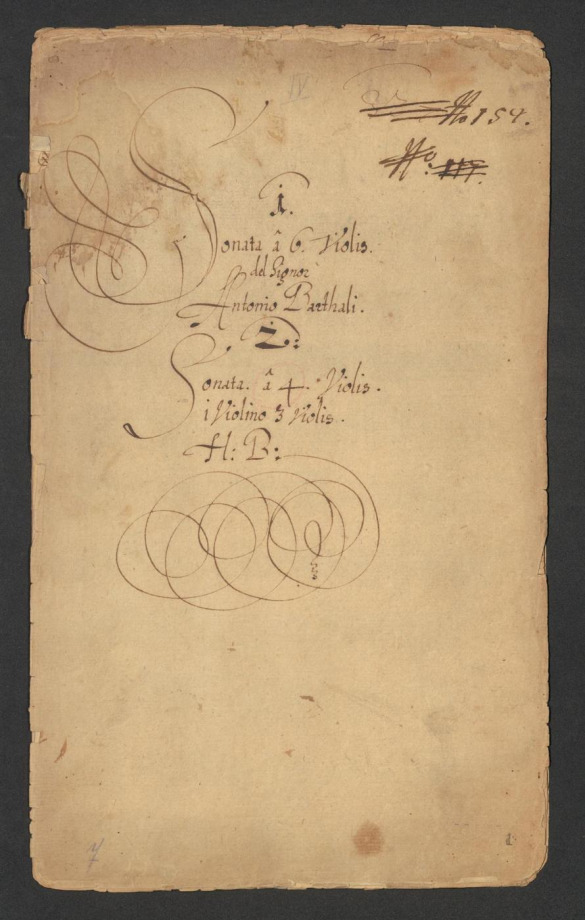 IV
No 154.
No. 117.
1.
Sonata â 6. Violis.
del Signor
Antonio Barthali.
2.:
Sonata. â 4. Violis.
i Violino 3 Violis.
H: B: